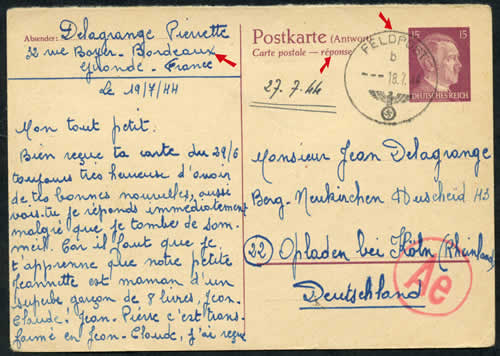 Absender: Delagrange Pierrette
32 rue Boyer - Bordeaux
Gironde - France
Le 19/7/44
Mon tout petit.
Bien reçue ta carte du 29/6
toujours très heureuse d'avoir
de tes bonnes nouvelles, aussi
vois-tu je réponds immédiatement
malgré que je tombe de som-
meil. Car il faut que je
t'apprenne que notre petite
Jeannette est maman d'un
superbe garçon de 8 livres, Jean-
Claude! Jean-Pierre c'est trans-
formé en Jean-Claude, j'ai reçue
Postkarte (Antwort
Carte postale — réponse
27.7.44
FELDPOST
b
18.7.
15 15
DEUTSCHES REICH
Monsieur Jean Delagrange
Berg-Neukirchen Huscheid H3
22 Opladen bei Köln (Rheinland)
Deutschland
Ae